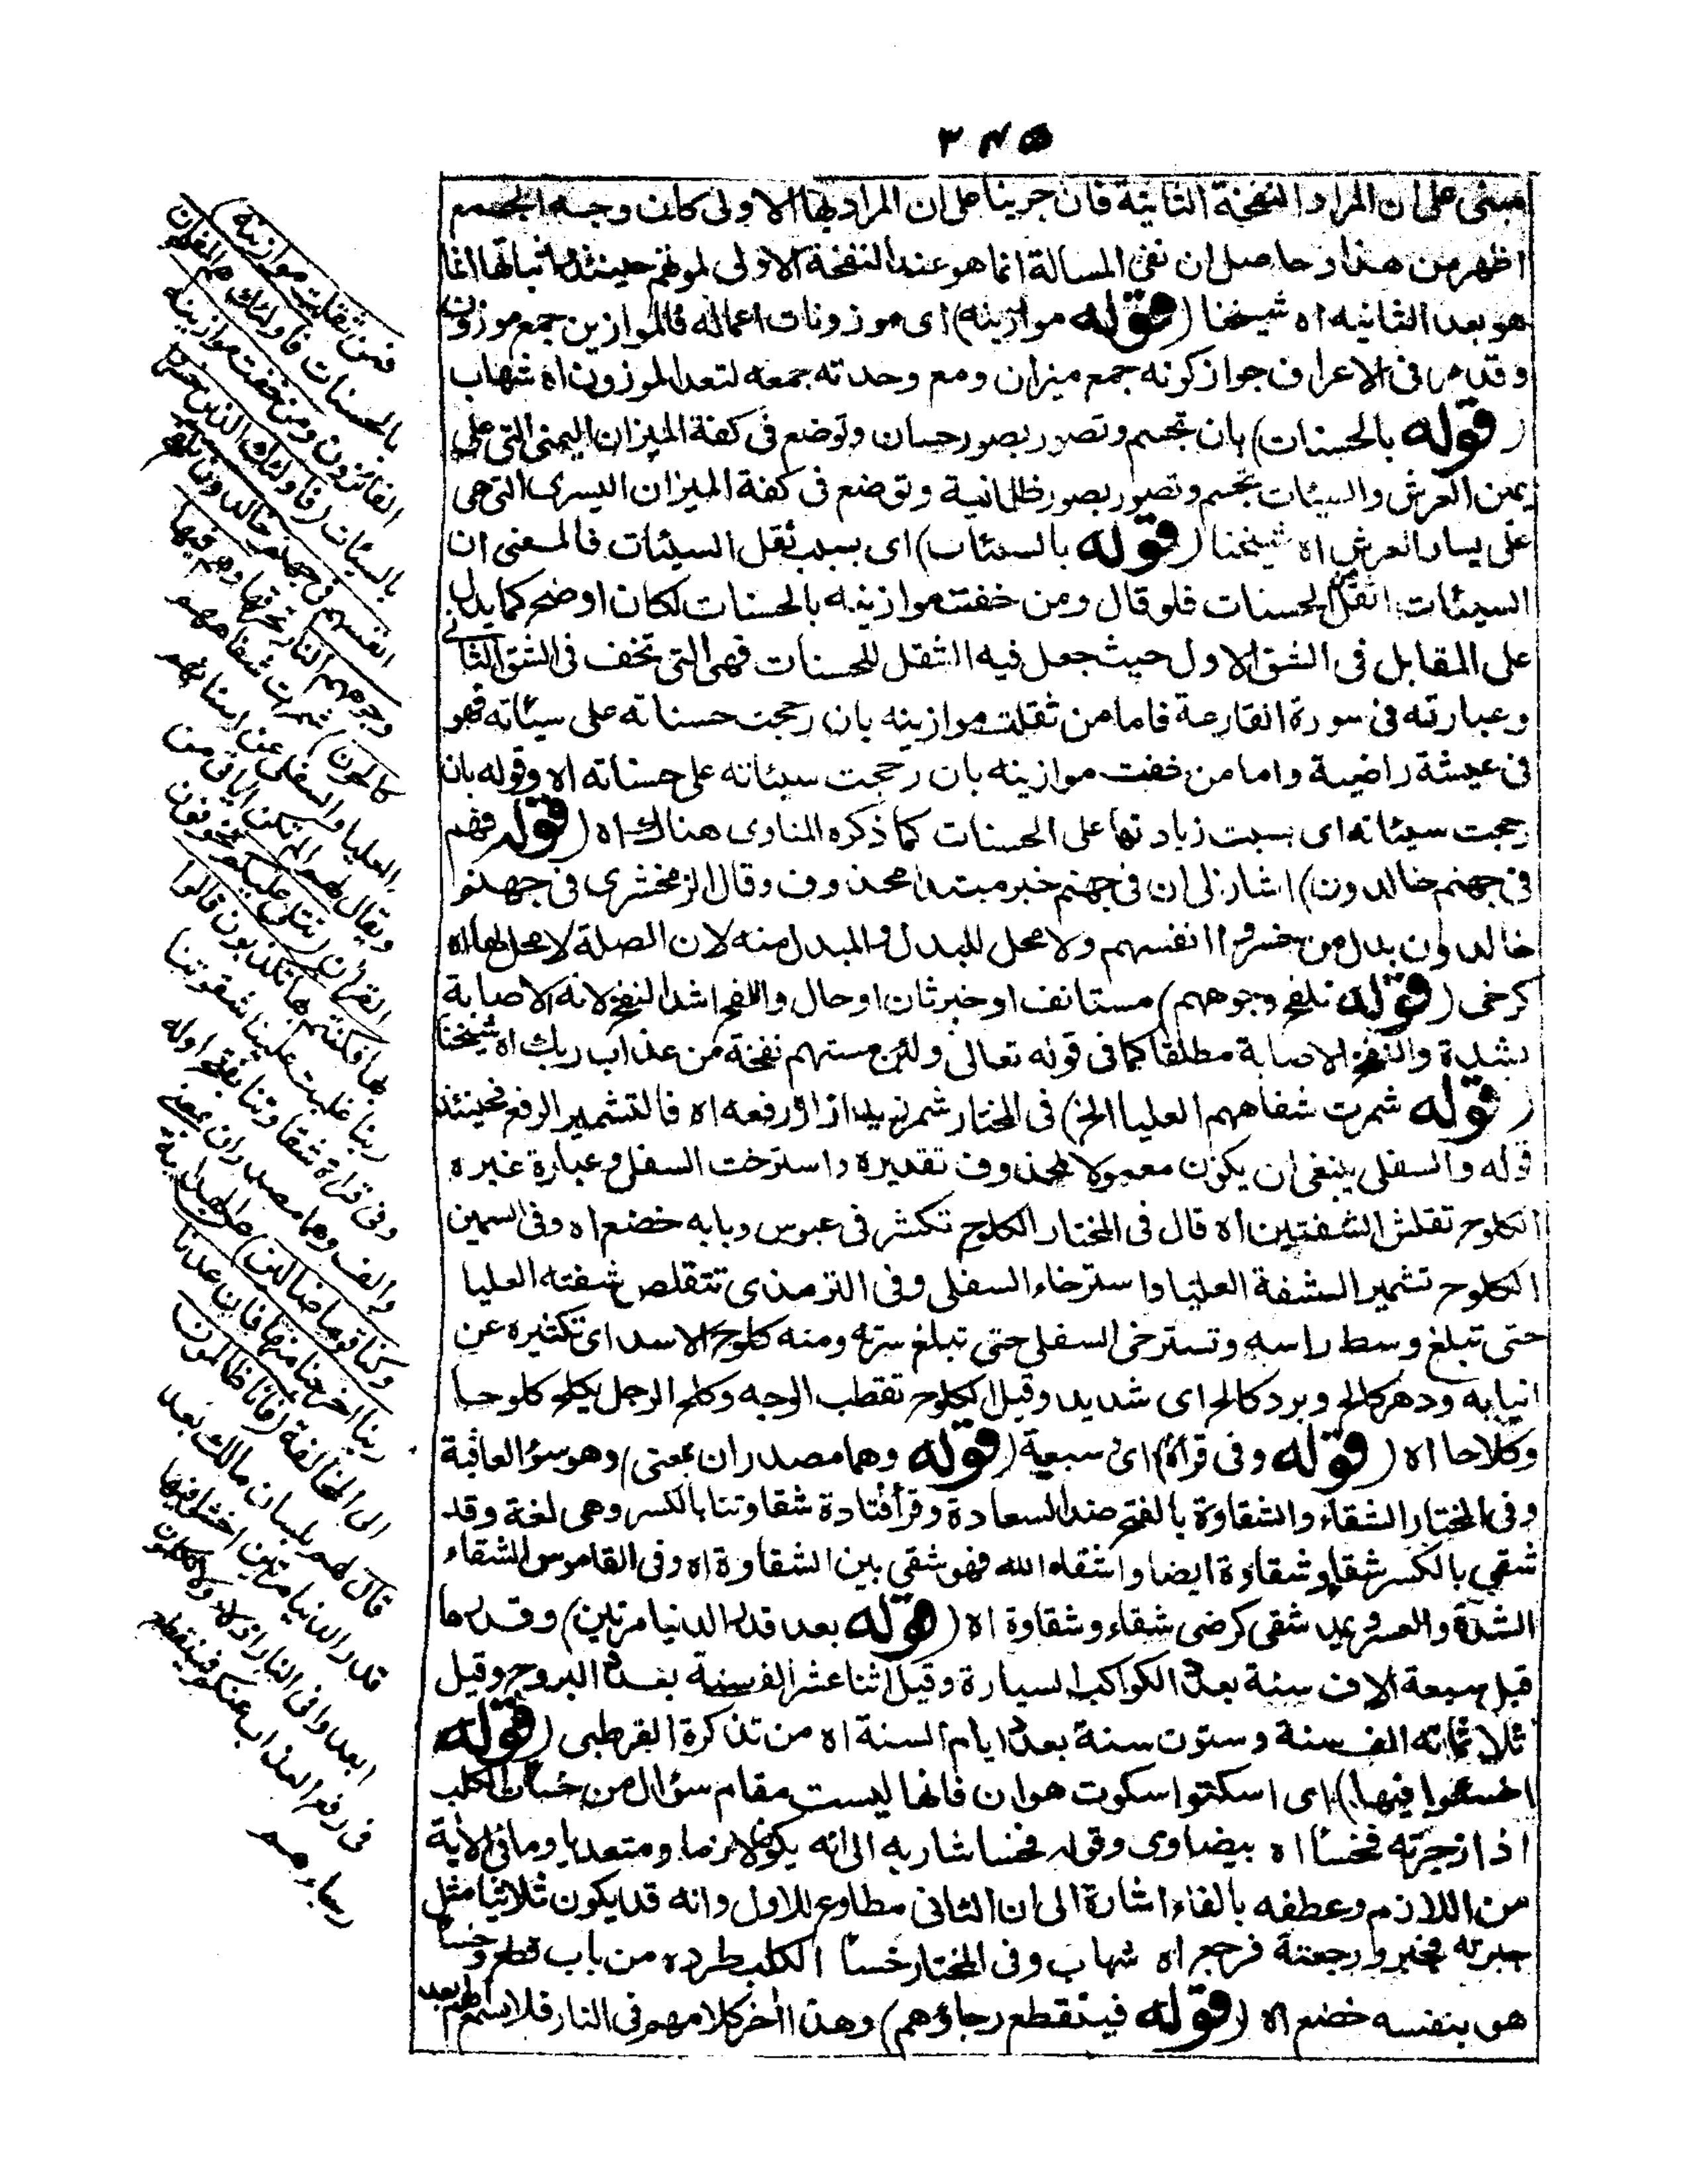 ٣٤٥
مبنى على ان المراد النفخة الثانية فان جرينا على ان المراد بها الاولى كان وجه الجمع
اظهر من هذا وحاصل ان نفى المسالة انما هو عند النفخة الاولى لموتهم حينئذ واثباتها انما
هو بعد الثانيه اه شيخنا (قوله موازينه) اى موزونات اعماله فالموازين جمع موزون
وقد مر فى الاعراف جواز كونه جمع ميزان ومع وحدته جمعه لتعدد الموزون اه شهاب
(قوله بالحسنات) بان تجسم وتصور بصور حسان وتوضع فى كفة الميزان اليمنى التى على
يمين العرش والسيئات تجسم وتصور بصور ظلمانية وتوضع فى كفة الميزان اليسرى التى هى
على يسار العرش اه شيخنا (قوله بالسيئات) اى بسبب ثقل السيئات فالمعنى ان
السيئات اثقل من الحسنات فلو قال ومن خفت موازينه بالحسنات لكان اوضح كما يدل
على المقابل فى الشق الاول حيث جعل فيه الثقل للحسنات فهى التى تخف فى الشق الثانى
وعبارته فى سورة القارعة فاما من ثقلت موازينه بان رجحت حسناته على سيئاته فهو
فى عيشة راضية واما من خفت موازينه بان رجحت سيئاته على حسناته اه وقوله بان
رجحت سيئاته اى بسبب زيادتها على الحسنات كما ذكره المناوى هناك اه (قوله فهم
فى جهنم خالدون) اشار الى ان فى جهنم خبر مبتدا محذوف وقال الزمخشرى فى جهنم
خالدون بدل من خسروا انفسهم ولا محل للبدل والمبدل منه لان الصلة لا محل لها اه
كرخى (قوله تلفح وجوههم) مستانف او خبر ثان او حال واللفح اشد النفح لانه الاصابة
بشدة والنفح الاصابة مطلقا كما فى قوله تعالى ولئن مستهم نفحة من عذاب ربك اه شيخنا
(قوله شمرت شفاههم العليا الخ) فى المختار شمر ازاره رفعه اه فالتشمير الرفع فحينئذ
قوله والسفلى ينبغى ان يكون معمولا لمحذوف تقديره واسترخت السفلى وعبارة غيره
الكلوح تقلش الشفتين اه قال فى المختار الكلوح تكشر فى عبوس وبابه خضع اه وفى السمين
الكلوح تشمير الشفة العليا واسترخاء السفلى وفى الترمذى تتقلص شفته العليا
حتى تبلغ وسط راسه وتسترخى السفلى حتى تبلغ سرته ومنه كلوح الاسد اى تكشيره عن
انيابه ودهر كالح وبرد كالح اى شديد وقيل الكلوح تقطب الوجه وكلح الرجل يكلح كلوحا
وكلاحا اه (قوله وفى قراءة) اى سبعية (قوله وهما مصدران بمعنى) وهو سؤ العاقبة
وفى المختار الشقاء والشقاوة بالفتح ضد السعادة وقرأ قتادة شقاوتنا بالكسر وهى لغة وقد
شقى بالكسر شقاء وشقاوة ايضا واشقاه الله فهو شقى بين الشقاوة اه وفى القاموس الشقاء
الشدة والعسر ويمد شقى كرضى شقاء وشقاوة اه (قوله بعد قدر الدنيا مرتين) وقدرها
قيل سبعة الاف سنة بعدد الكواكب السيارة وقيل اثنا عشر الف سنة بعدد البروج وقيل
ثلاثمائه الف سنة وستون سنة بعدد ايام السنة اه من تذكرة القرطبى (قوله
اخسئوا فيها) اى اسكتوا سكوت هوان فانها ليست مقام سؤال من خسأت الكلب
اذا زجرته فخسأ اه بيضاوى وقوله فخسا اشار به الى انه يكون لازما ومتعديا وما فى الاية
من اللازم وعطفه بالفاء اشارة الى ان الثانى مطاوع للاول وانه قد يكون ثلاثيا مثل
جبرته فجبر ورجعته فرجع اه شهاب وفى المختار خسأ الكلب طرده من باب قطع وخسأ
هو بنفسه خضع اه (قوله فينقطع رجاؤهم) وهذا اخر كلامهم فى النار فلا يسمع لهم بعد
(فمن ثقلت موازينه)
بالحسنات فاولئك هم المفلحون
الفائزون ومن خفت موازينه
بالسيئات (فاولئك الذين خسروا
انفسهم) فى جهنم خالدون تلفح
وجوههم النار تحرقها وهم فيها
كالحون) شمرت شفاههم
العليا والسفلى عن اسنانهم
ويقال لهم الم تكن اياتى من
القران (تتلى عليكم تخوفون
بها فكنتم بها تكذبون قالوا
ربنا غلبت علينا شقوتنا
وفى قراءة شقاوتنا بفتح اوله
والف وهما مصدران بمعنى
وكنا قوما ضالين) عن الهداية
ربنا اخرجنا منها فان عدنا
الى المخالفة (فانا ظالمون
قال لهم بلسان مالك بعد
قدر الدنيا مرتين اخسئوا فيها
ابعدوا فى النار اذلاء ولا تكلمون
فى رفع العذاب عنكم فينقطع
رجاءهم